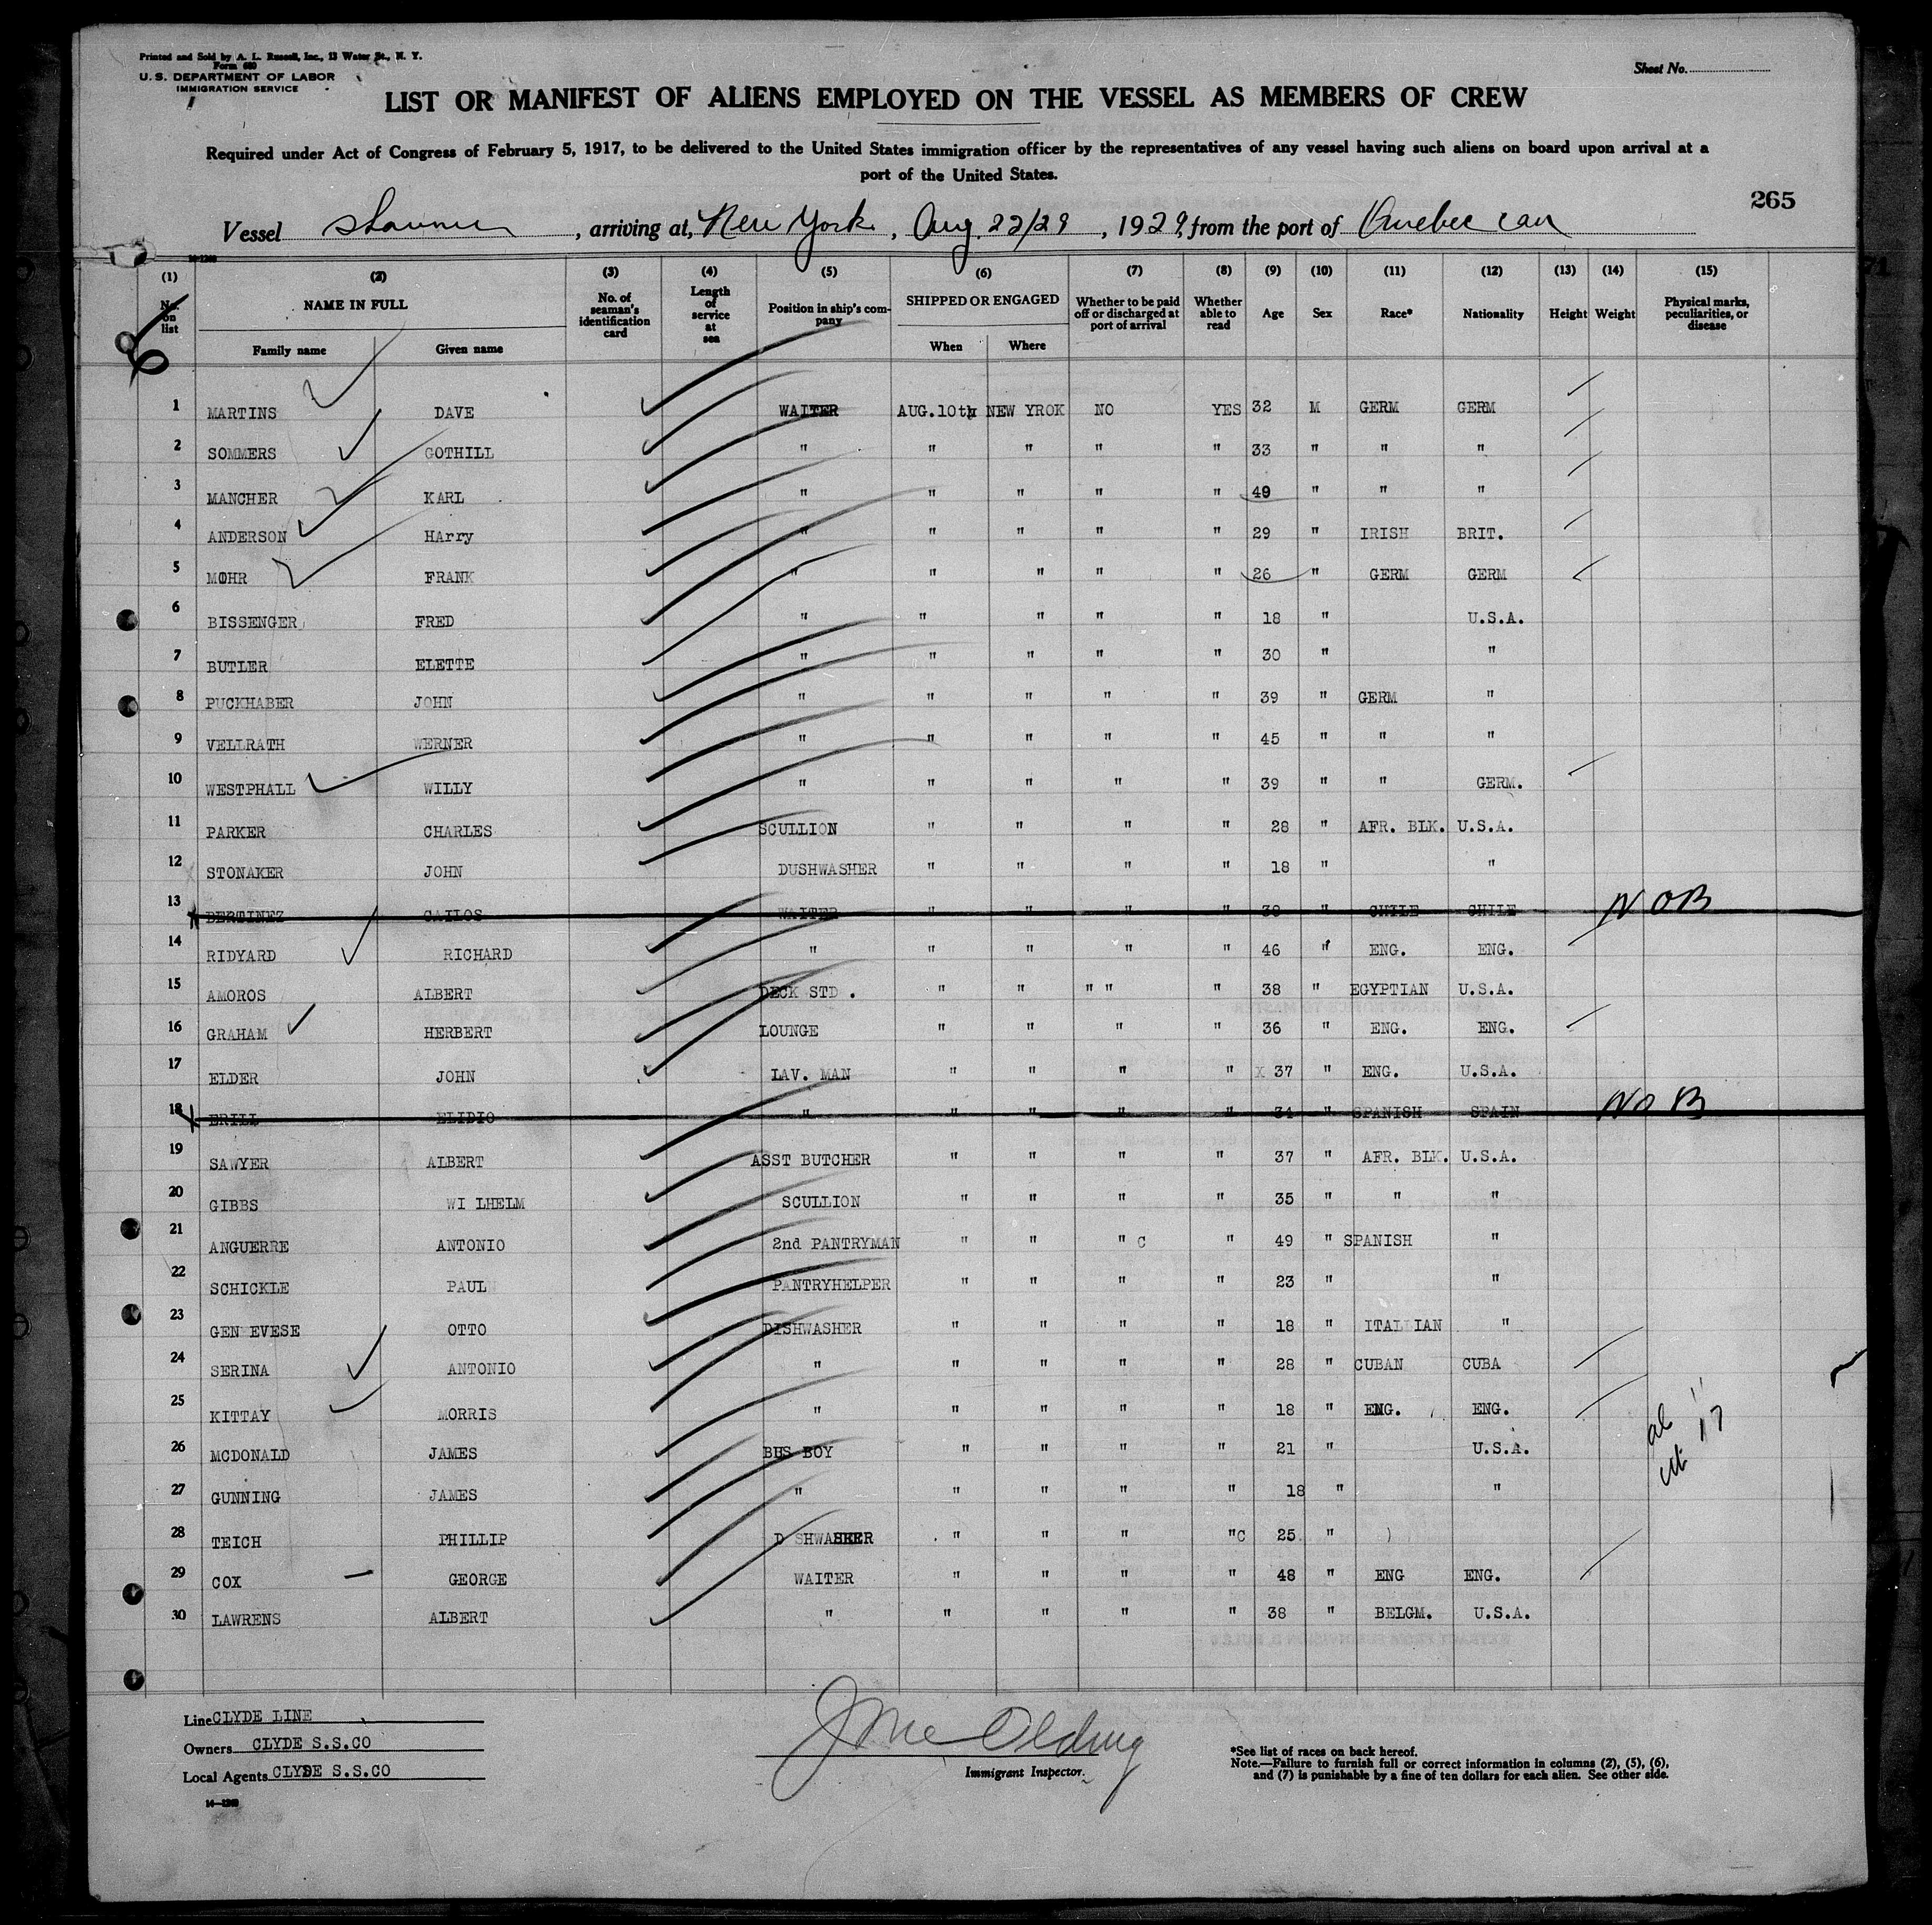 Printed and Sold by A. L. Russell, Inc., 13 Water St., N. Y.
Form 680
U. S. DEPARTMENT OF LABOR
IMMIGRATION SERVICE
Sheet No.
LIST OR MANIFEST OF ALIENS EMPLOYED ON THE VESSEL AS MEMBERS OF CREW
Required under Act of Congress of February 5, 1917, to be delivered to the United States immigration officer by the representatives of any vessel having such aliens on board upon arrival at a
port of the United States.
265
Vessel Shawnee, arriving at, New York, Aug. 22/29, 1929, from the port of Quebec Can
(1) (2) (3) (4) (5) (6) (7) (8) (9) (10) (11) (12) (13) (14) (15)
No. on list NAME IN FULL Family name Given name No. of seaman's identification card Length of service at sea Position in ship's company SHIPPED OR ENGAGED When Where Whether to be paid off or discharged at port of arrival Whether able to read Age Sex Race* Nationality Height Weight Physical marks, peculiarities, or disease
1 MARTINS DAVE WAITER AUG.10th NEW YROK NO YES 32 M GERM GERM
2 SOMMERS GOTHILL " " " " " 33 " " "
3 MANCHER KARL " " " " " 49 " " "
4 ANDERSON HArry " " " " " 29 " IRISH BRIT.
5 MOHR FRANK " " " " " 26 " GERM GERM
6 BISSENGER FRED " " " " " 18 " U.S.A.
7 BUTLER ELETTE " " " " " 30 " "
8 PUCKHABER JOHN " " " " " 39 " GERM "
9 VELLRATH WERNER " " " " " 45 " " "
10 WESTPHALL WILLY " " " " " 39 " " GERM.
11 PARKER CHARLES SCULLION " " " " 28 " AFR. BLK. U.S.A.
12 STONAKER JOHN DUSHWASHER " " " " 18 " "
13 BERTINEZ CAILOS WAITER " " " " 30 " CHILE CHILE NOB
14 RIDYARD RICHARD " " " " " 46 " ENG. ENG.
15 AMOROS ALBERT DECK STD . " " " " " 38 " EGYPTIAN U.S.A.
16 GRAHAM HERBERT LOUNGE " " " " 36 " ENG. ENG.
17 ELDER JOHN LAV. MAN " " " " X 37 " ENG. U.S.A.
18 ERILL ELIDIO " " " " " 34 " SPANISH SPAIN NOB
19 SAWYER ALBERT ASST BUTCHER " " " " 37 " AFR. BLK. U.S.A.
20 GIBBS WI LHELM SCULLION " " " " 35 " " "
21 ANGUERRE ANTONIO 2nd PANTRYMAN " " " C " 49 " SPANISH "
22 SCHICKLE PAUL PANTRYHELPER " " " " 23 " "
23 GEN EVESE OTTO DISHWASHER " " " " 18 " ITALLIAN "
24 SERINA ANTONIO " " " " " 28 " CUBAN CUBA
25 KITTAY MORRIS " " " " " 18 " ENG. ENG.
26 MCDONALD JAMES BHS BOY " " " " 21 " U.S.A.
27 GUNNING JAMES " " " " " 18 " "
28 TEICH PHILLIP D SHWASHER " " " "C 25 "
29 COX GEORGE WAITER " " " " 48 " ENG ENG.
30 LAWRENS ALBERT " " " " " 38 " BELGM. U.S.A.
Line CLYDE LINE
Owners CLYDE S.S.CO
Local Agents CLYDE S.S.CO
14—1240
Immigrant Inspector.
*See list of races on back hereof.
Note.—Failure to furnish full or correct information in columns (2), (5), (6),
and (7) is punishable by a fine of ten dollars for each alien. See other side.